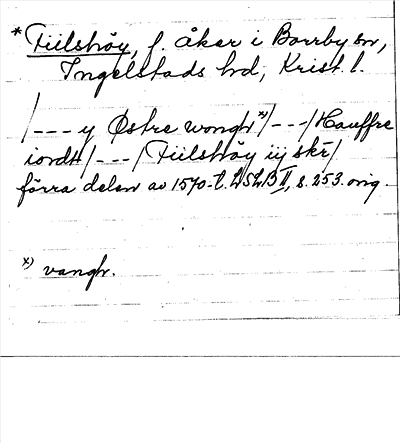 *Fiilshöy, f. åker i Borrby sn,
Ingelstads hd, Krist. l.
/--- y Østre wongh x) /---/ Hauffre
iordt /---/ Fiilshöy iij skr/
förra delen av 1570-t. LSLB II, s. 253. orig.
x) vangh.